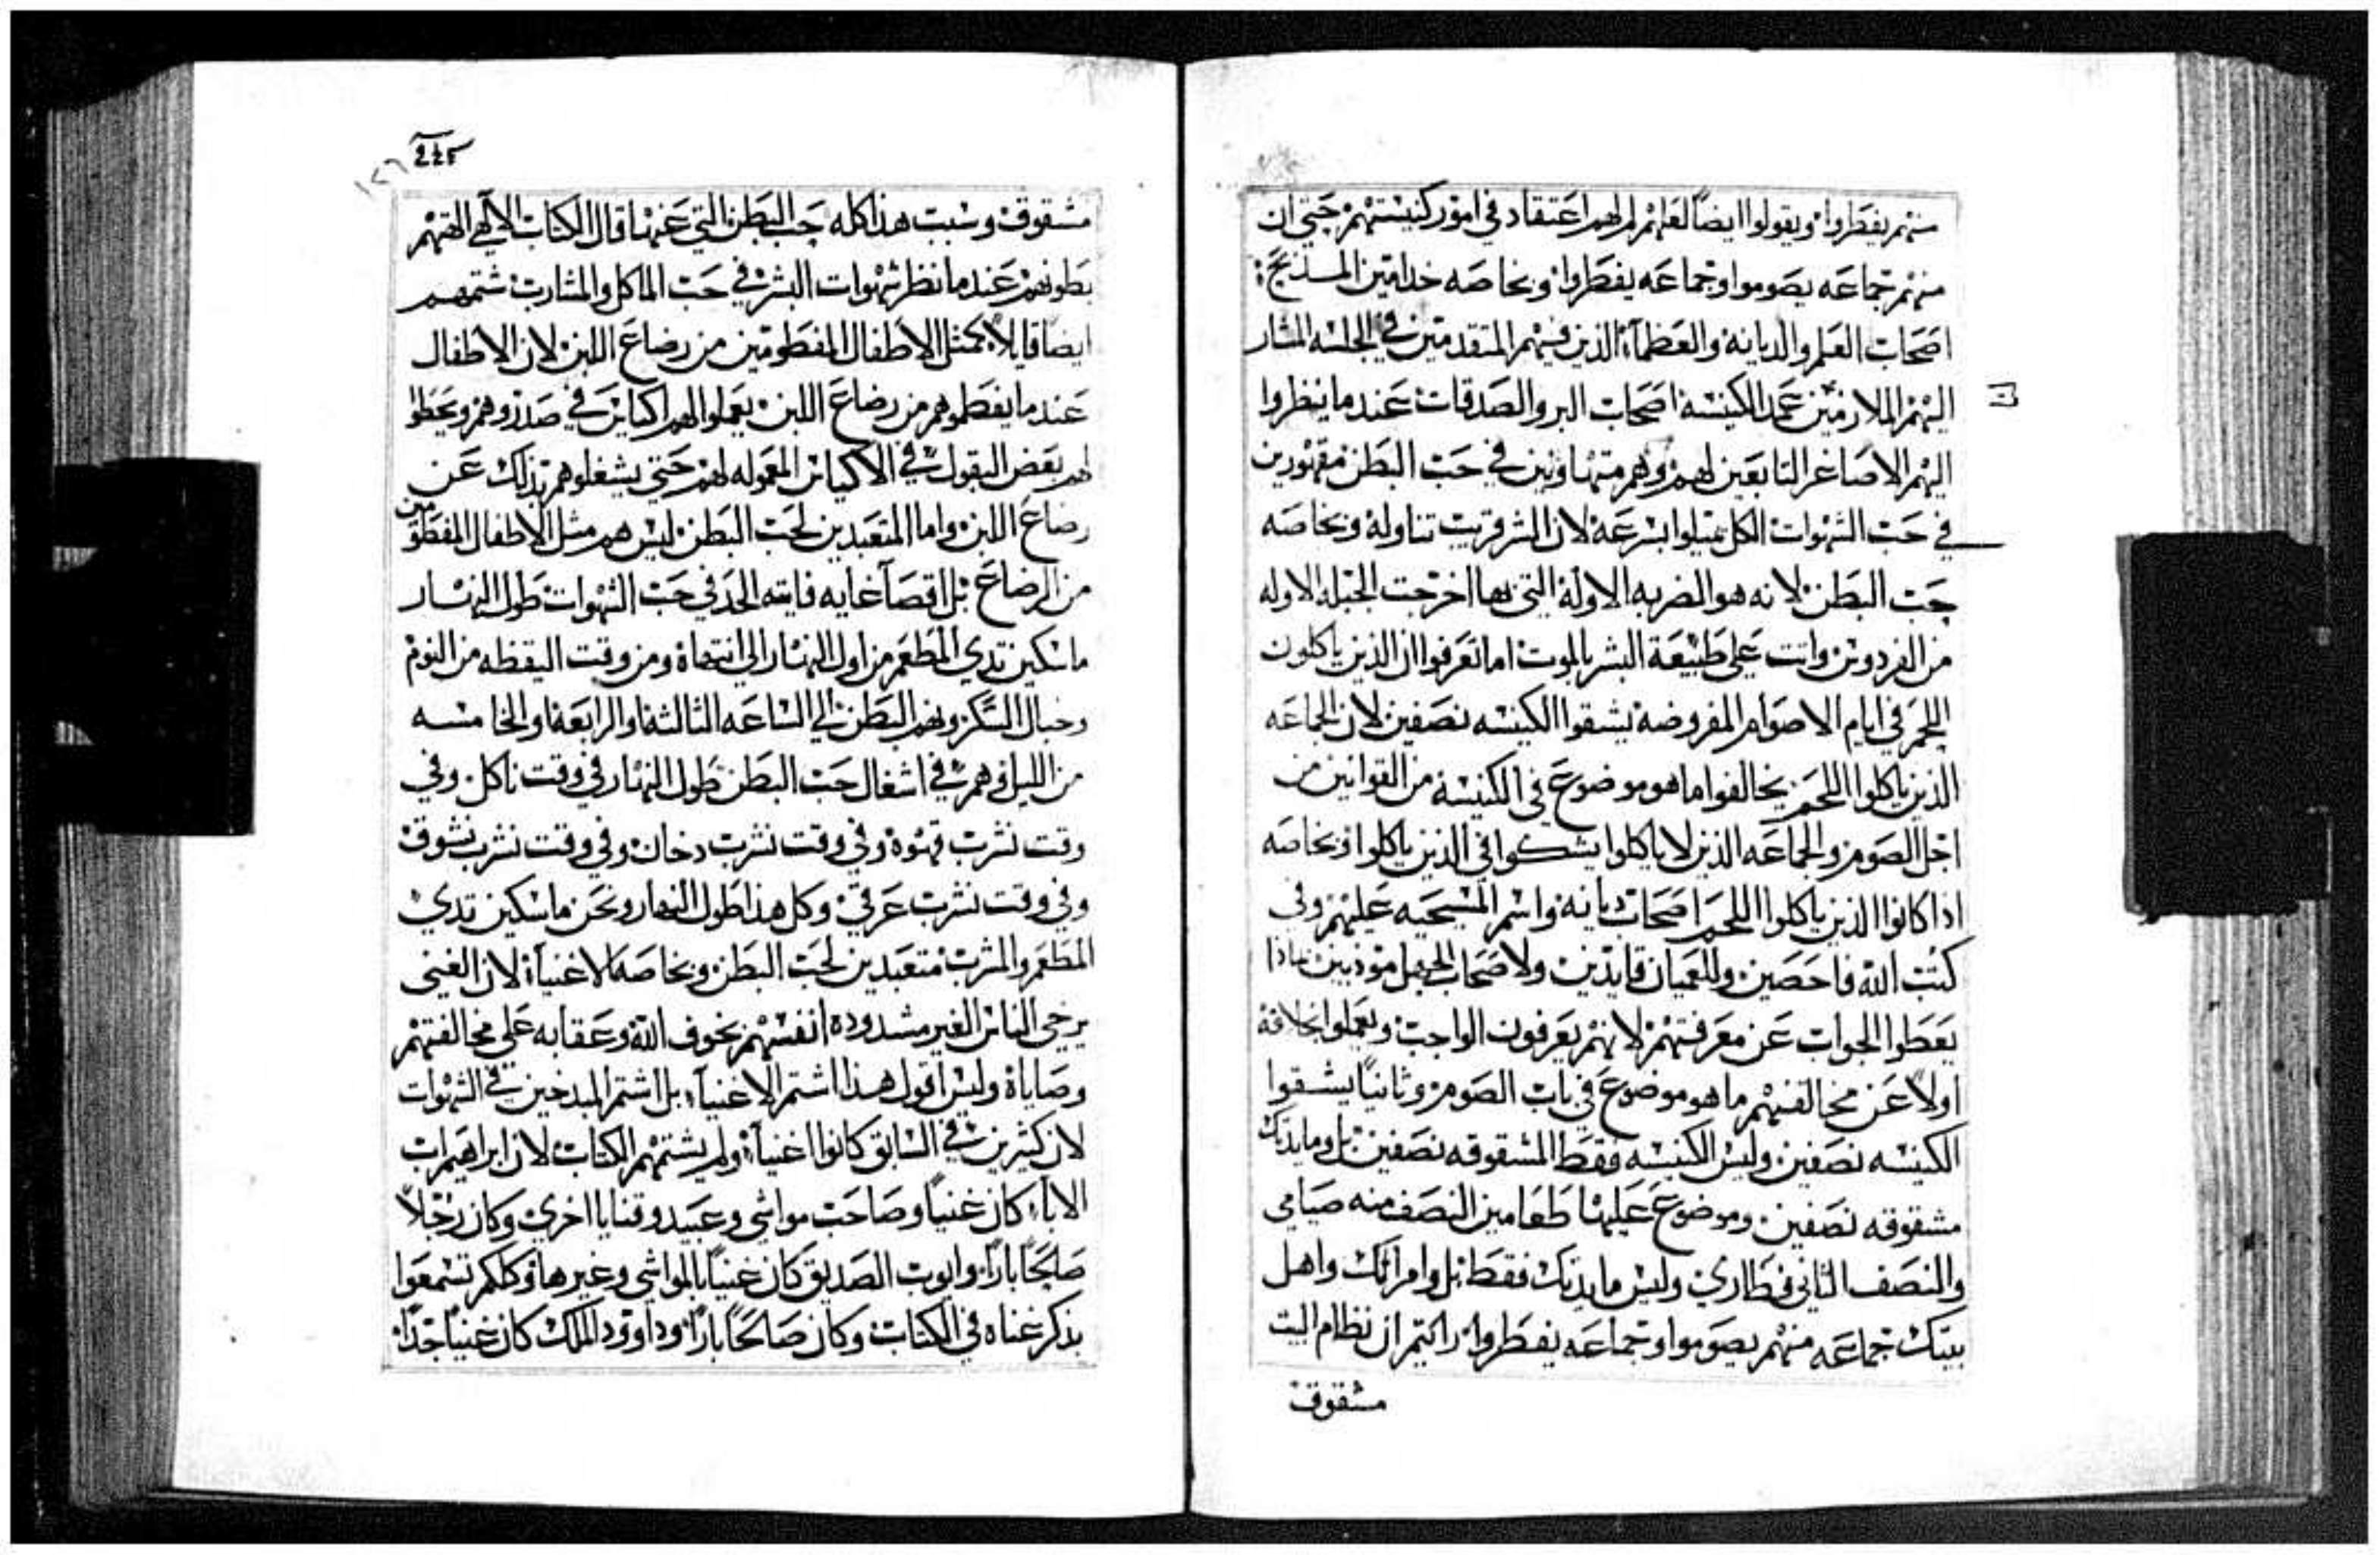 منهم يفطروا ويقولوا ايضاً لعلهم لم لهم اعتقاد في امور كنيستهم حتي ان
منهم جماعه يصوموا وجماعه يفطروا وبخاصه خدامين المسذبح
اصحاب العلم والديانه والعظمآء الذين فيهم المتقدمين في الجلسه المشار
اليهم الملازمين عمد الكنيسه اصحاب البر والصدقات عندما ينظروا
اليهم الاصاغر التابعين لهم وهم متهاونين في حب البطن مقهورين
في حب الشهوات الكل يميلوا بسرعه لان الشر قريب تناوله وبخاصه
حب البطن لانه هو الضربه الاوله التي بها اخرجت الجبله الاوله
من الفردوس واتت علي طبيعة البشر بالموت اما تعرفوا ان الذين ياكلون
اللحم في ايام الاصوام المفروضه يشقوا الكنيسه نصفين لان الجماعه
الذين ياكلوا اللحم يخالفوا ما هو موضوع في الكنيسه من القوانين من
اجل الصوم والجماعه الذين لا ياكلوا يشكوا في الذين ياكلوا وبخاصه
اذا كانوا الذين ياكلوا اللحم اصحاب ديانه واسم المسيحيه عليهم وفي
كتب الله فاحصين وللعميان قايدين ولاصحاب الجهل مودبين ماذا
يعطوا الجواب عن معرفتهم لانهم يعرفون الواجب ويعملوا بخلافه
اولاً عن مخالفتهم ما هو موضوع في باب الصوم وثانياً يشقوا
الكنيسه نصفين وليس الكنيسه فقط المشقوقه نصفين بل ومايدتك
مشقوقه نصفين وموضوع عليها طعامين النصف منه صيامي
والنصف الثاني فطاري وليس مايدتك فقط بل وامراتك واهل
بيتك جماعه منهم يصوموا وجماعه يفطروا رايتم ان نظام البيت
مشقوق
245
مشقوق وسبب هذا كله حب البطن التي عنها قال الكتاب الالهي الهتهم
بطونهم عندما نظر شهوات البشر في حب الماكل والمشارب شتمهم
ايضاً قايلاً كمثل الاطفال المفطومين من رضاع اللبن لان الاطفال
عندما يفطموهم من رضاع اللبن يعملوا لهم اكياس في صدروهم ويحطوا
لهم بعض البقول في الاكياس المعموله لهم حتي يشغلوهم بذلك عن
رضاع اللبن واما المتعبدين لحب البطن ليس هم مثل الاطفال المفطومين
من الرضاع بل اقصآ غايه فايته الحد في حب الشهوات طول النهار
ماسكين تدي المطعم من اول النهار الي انتهاه ومن وقت اليقظه من النوم
وخبال السكر ونهم البطن الي الساعه الثالثه والرابعه والخامسه
من الليل وهم في اشغال حب البطن طول النهار في وقت ناكل وفي
وقت نشرب قهوه وفي وقت نشرب دخان وفي وقت نشرب نشوق
وفي وقت نشرب عرقي وكل هذا طول النهار ونحن ماسكين تدي
المطعم والمشرب متعبدين لحب البطن وبخاصه الاغنيآء لان الغني
يرخي الناس الغير مشدوده انفسهم بخوف الله وعقابه علي مخالفتهم
وصاياه وليس اقول هذا اشتم الاغنيآء بل اشتم المبدخين في الشهوات
لان كثيرين في السابق كانوا اغنيآء ولم يشتمهم الكتاب لان ابراهيم اب
الابآء كان غنياً وصاحب مواشي وعبيد وقنايا اخري وكان رجلاً
صالحاً باراً وايوب الصديق كان غنياً بالمواشي وغيرها وكلكم تسمعوا
بذكر غناه في الكتاب وكان صالحاً باراً وداوود الملك كان غنياً جداً